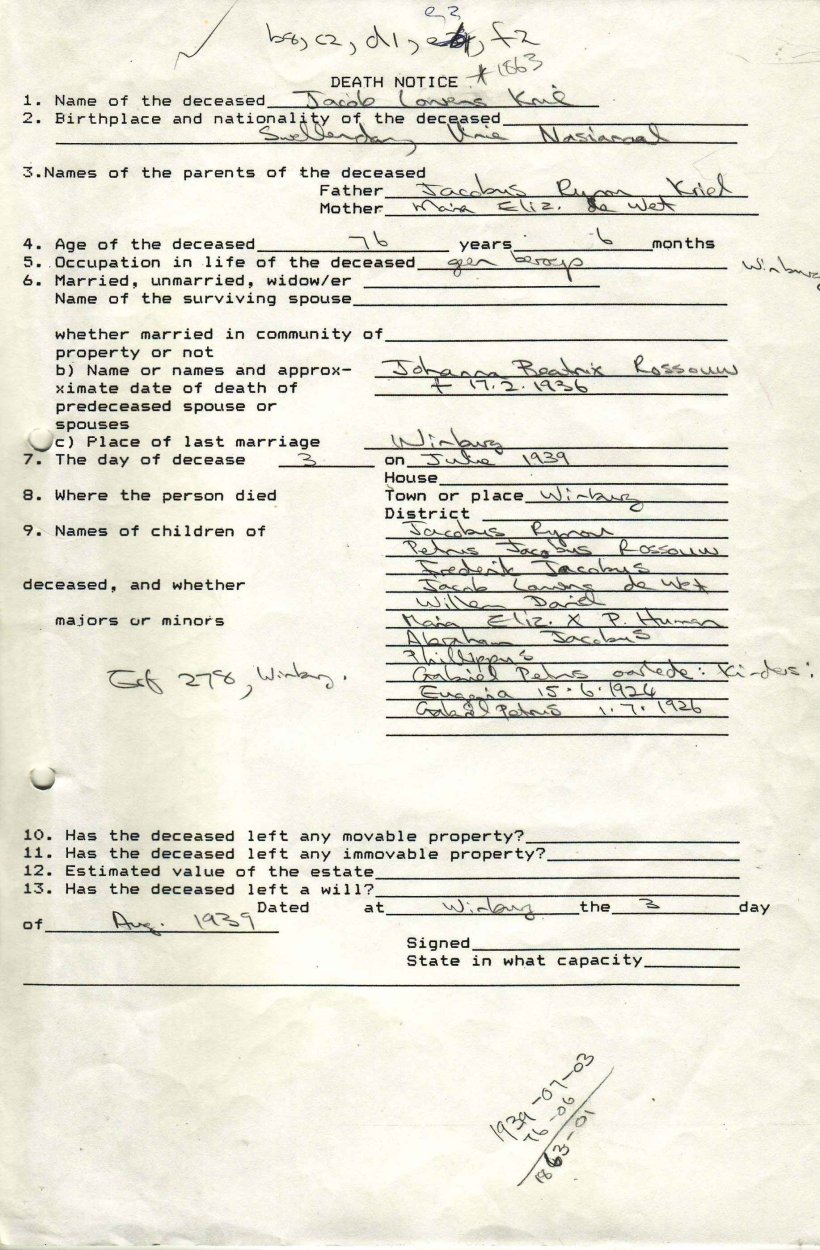 e3
b8, c2, d1, f2
DEATH NOTICE * 1863
1. Name of the deceased Jacob Lowens Kriel
2. Birthplace and nationality of the deceased
Swellendam, Unie Nasionaal
3.Names of the parents of the deceased
Father Jacobus Rynou Kriel
Mother Maria Eliz. de Wet
4. Age of the deceased 76 years 6 months
5. Occupation in life of the deceased geen beroep Winburg
6. Married, unmarried, widow/er
Name of the surviving spouse
whether married in community of
property or not
b) Name or names and approx- Johanna Beatrix Rossouw
ximate date of death of † 17.2.1936
predeceased spouse or
spouses
c) Place of last marriage Winburg
7. The day of decease 3 on Julie 1939
House
8. Where the person died Town or place Winburg
District
9. Names of children of Jacobus Rynou
Petrus Jacobus Rossouw
Frederik Jacobus
deceased, and whether Jacob Lowens de Wet
Willem Daniel
majors or minors Maria Eliz. X P. Human
Abraham Jacobus
Phillippus
Erf 278, Winburg. Gabriel Petrus oorlede: Kinders:
Eugenia 15.6.1924
Gabriel Petrus 1.7.1926
10. Has the deceased left any movable property?
11. Has the deceased left any immovable property?
12. Estimated value of the estate
13. Has the deceased left a will?
Dated at Winburg the 3 day
of Aug. 1939
Signed
State in what capacity
1939-07-03
76-06
1863-01